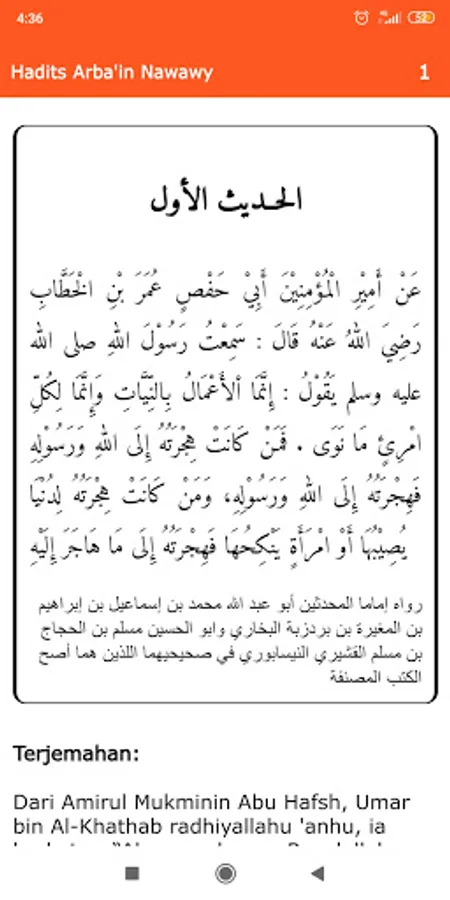 4:36
Hadits Arba'in Nawawy
1
الحديث الأول
عَنْ أَمِيْرِ الْمُؤْمِنِيْنَ أَبِيْ حَفْصٍ عُمَرَ بْنِ الْخَطَّابِ
رَضِيَ اللهُ عَنْهُ قَالَ : سَمِعْتُ رَسُوْلَ اللهِ صلى الله
عليه وسلم يَقُوْلُ : إِنَّمَا اْلأَعْمَالُ بِالنِّيَّاتِ وَإِنَّمَا لِكُلِّ
امْرِئٍ مَا نَوَى . فَمَنْ كَانَتْ هِجْرَتُهُ إِلَى اللهِ وَرَسُوْلِهِ
فَهِجْرَتُهُ إِلَى اللهِ وَرَسُوْلِهِ، وَمَنْ كَانَتْ هِجْرَتُهُ لِدُنْيَا
يُصِيْبُهَا أَوْ امْرَأَةٍ يَنْكِحُهَا فَهِجْرَتُهُ إِلَى مَا هَاجَرَ إِلَيْهِ
رواه إماما المحدثين أبو عبد الله محمد بن إسماعيل بن إبراهيم
بن المغيرة بن بردزبة البخاري وابو الحسين مسلم بن الحجاج
بن مسلم القشيري النيسابوري في صحيحيهما اللذين هما أصح
الكتب المصنفة
Terjemahan:
Dari Amirul Mukminin Abu Hafsh, Umar
bin Al-Khathab radhiyallahu 'anhu, ia